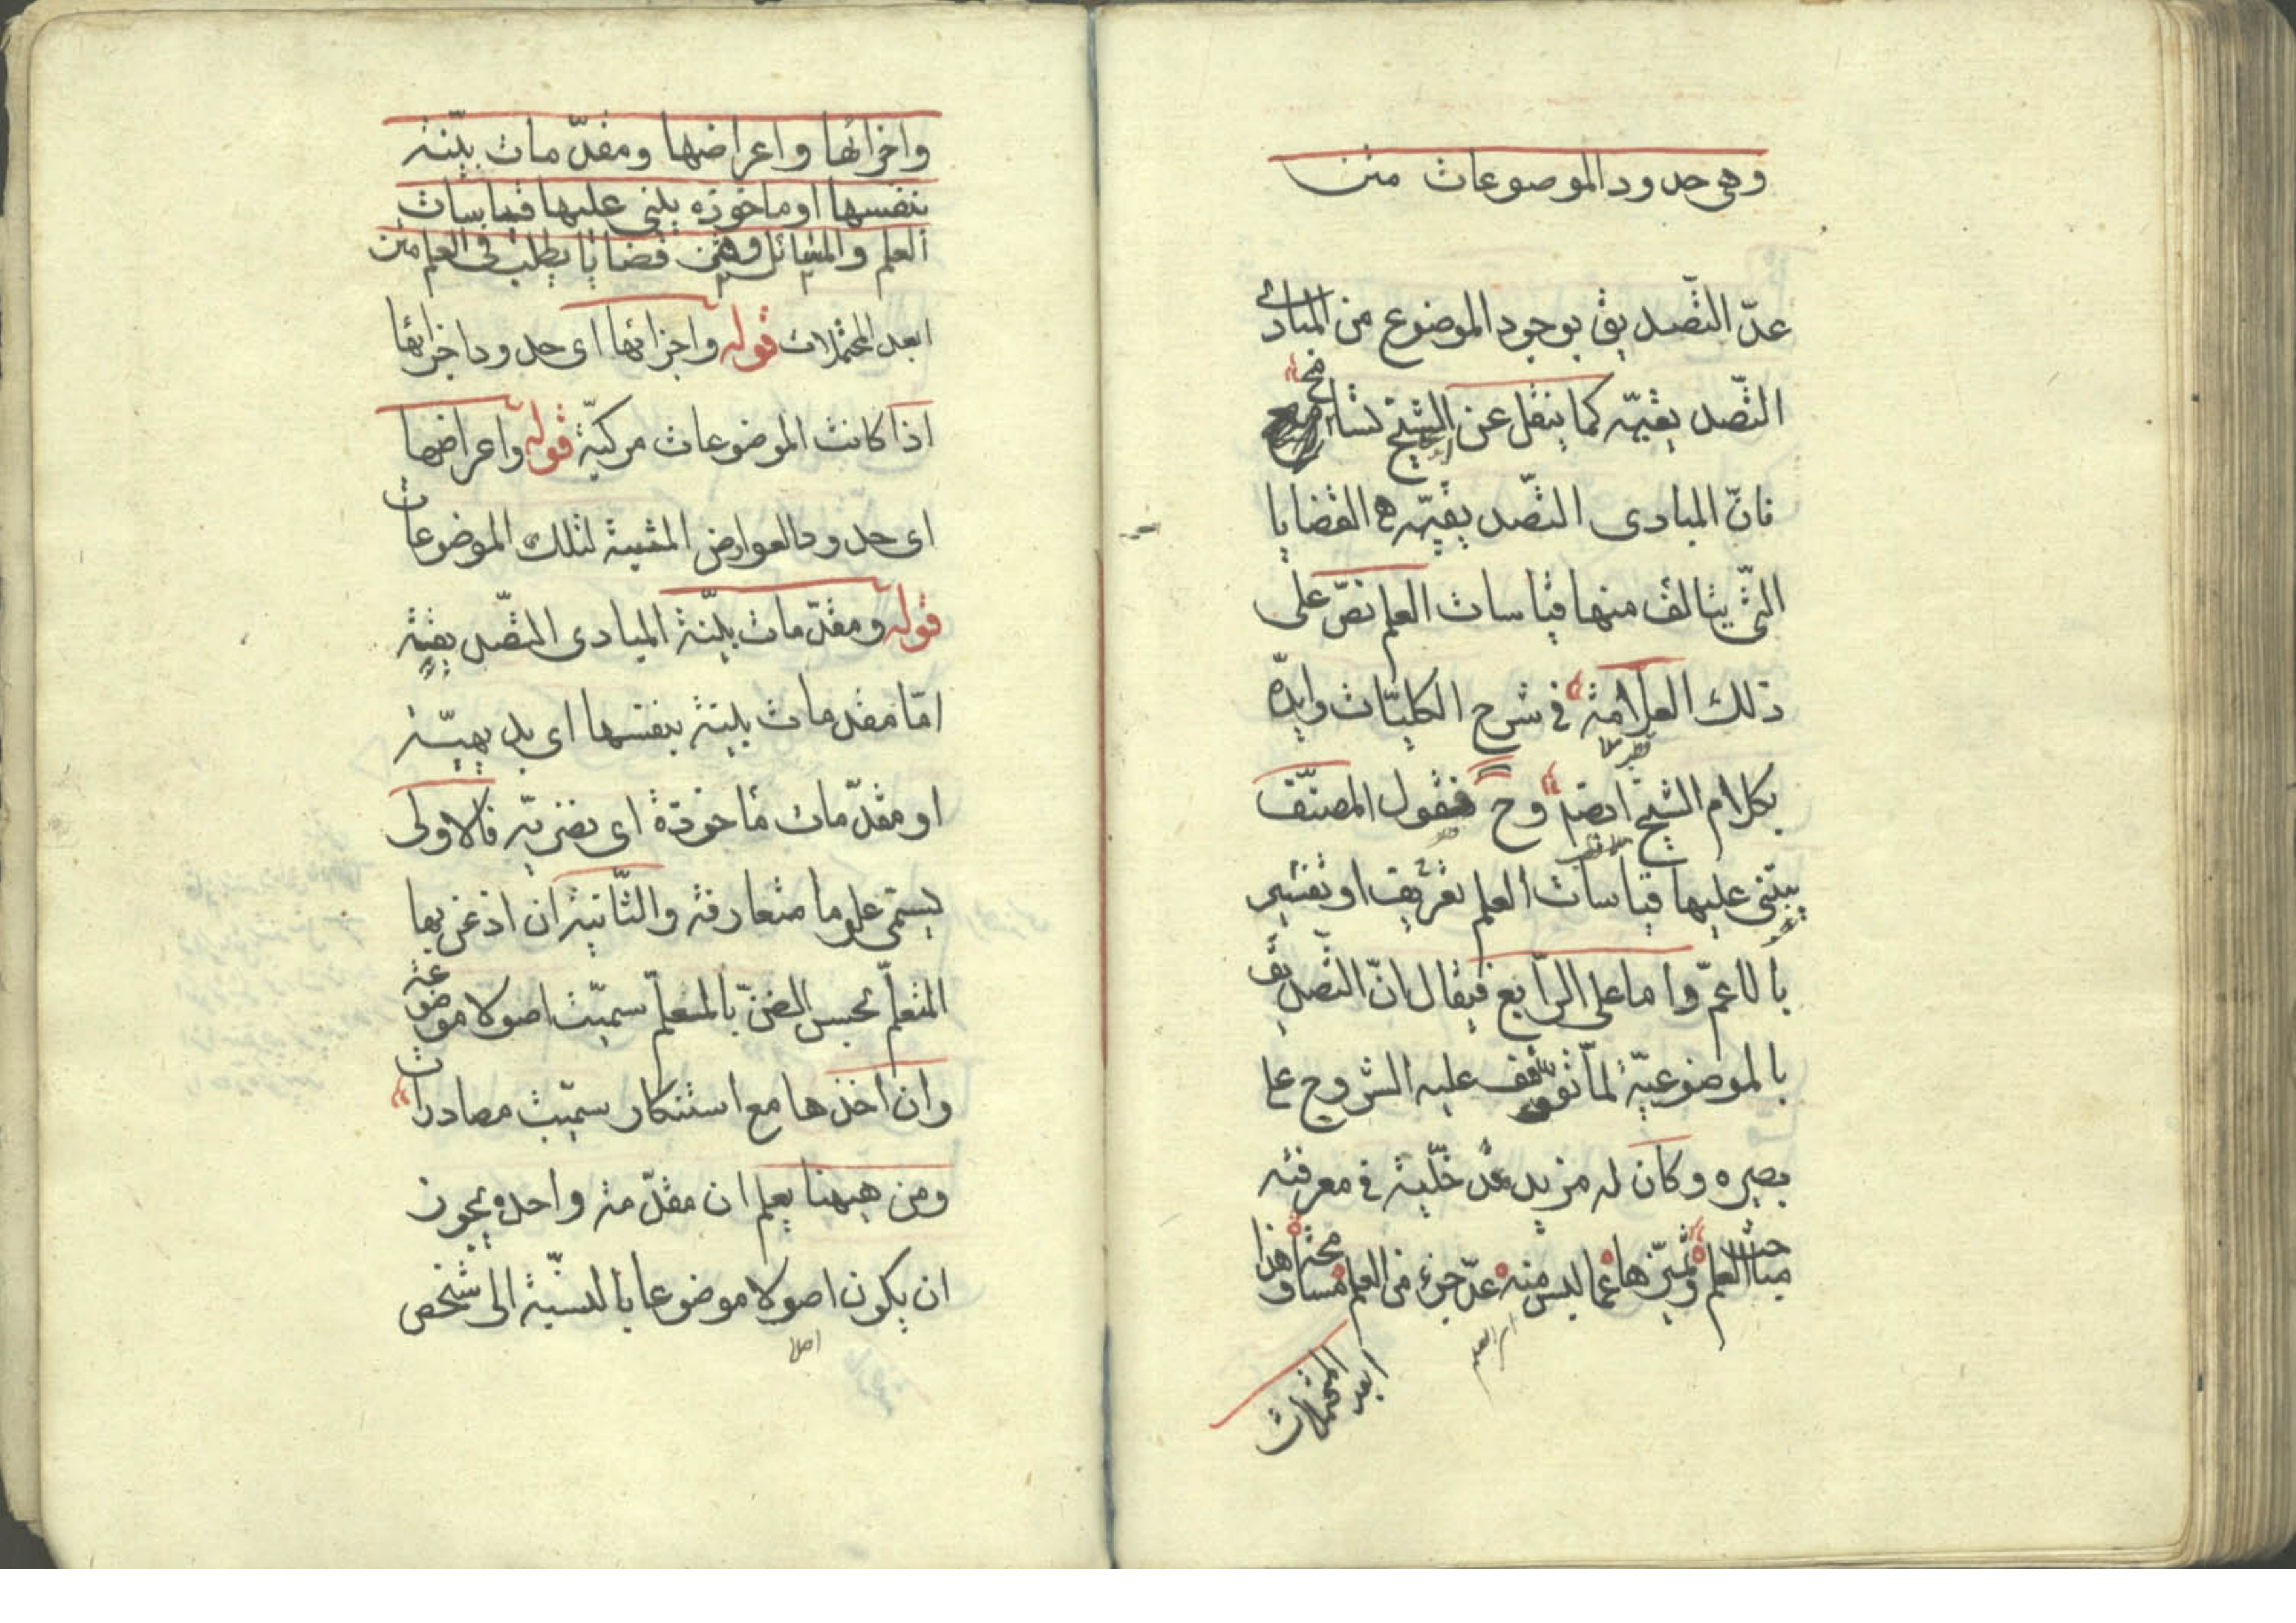 وهى حدود الموضوعات متن
عدّ التّصديق بوجود الموضوع من المبادئ
التّصديقيّه كما ينقل عن الشيخ تسامح
فانّ المبادى التّصديقيّه هى القضايا
التّى يتالف منها قياسات العلم نصّ على
ذلك العلامة فى شرح الكليّات وايدّه
بكلام الشيخ ايضا وح فقول المصنّف
يبتنى عليها قياسات العلم تعريف او تفسير
بالاعمّ واما على الرّابع فيقال انّ التصديق
بالموضوعيّة لمّا توقف عليه الشروع على
بصيره وكان له مزيد مدخليّة فى معرفته
مباحث العلم وتميّزها عمّا ليس منه عدّ جزء من العلم مسامحة وهذا
ابعد المحتملات
واجزائها واعراضها ومقدّمات بيّنة
بنفسها او ماخوذه يبنى عليها قياسات
العلم والمسائل وهى قضايا يطلب فى العلم متن
ابعد المحتملات قوله واجزائها اى حدود اجزائها
اذا كانت الموضوعات مركبّة قوله واعراضها
اى حدود العوارض المثبتة لتلك الموضوعات
قوله ومقدّمات بيّنة المبادى التصّديقيّة
امّا مقدمات بينة بنفسها اى بديهيّة
او مقدّمات ماخوذة اى نضريّه فالاولى
يسمّى علوما متعارفة والثّانية ان اذعن بها
المتعلّم بحسن الضنّ بالمعلّم سميّت اصولا موضوعة
وان اخذها مع استنكار سميّت مصادرات
ومن هيهنا يعلم ان مقدّمة واحده يجوز
ان يكون اصولا موضوعا بالنسبة الى شخص
اصلا